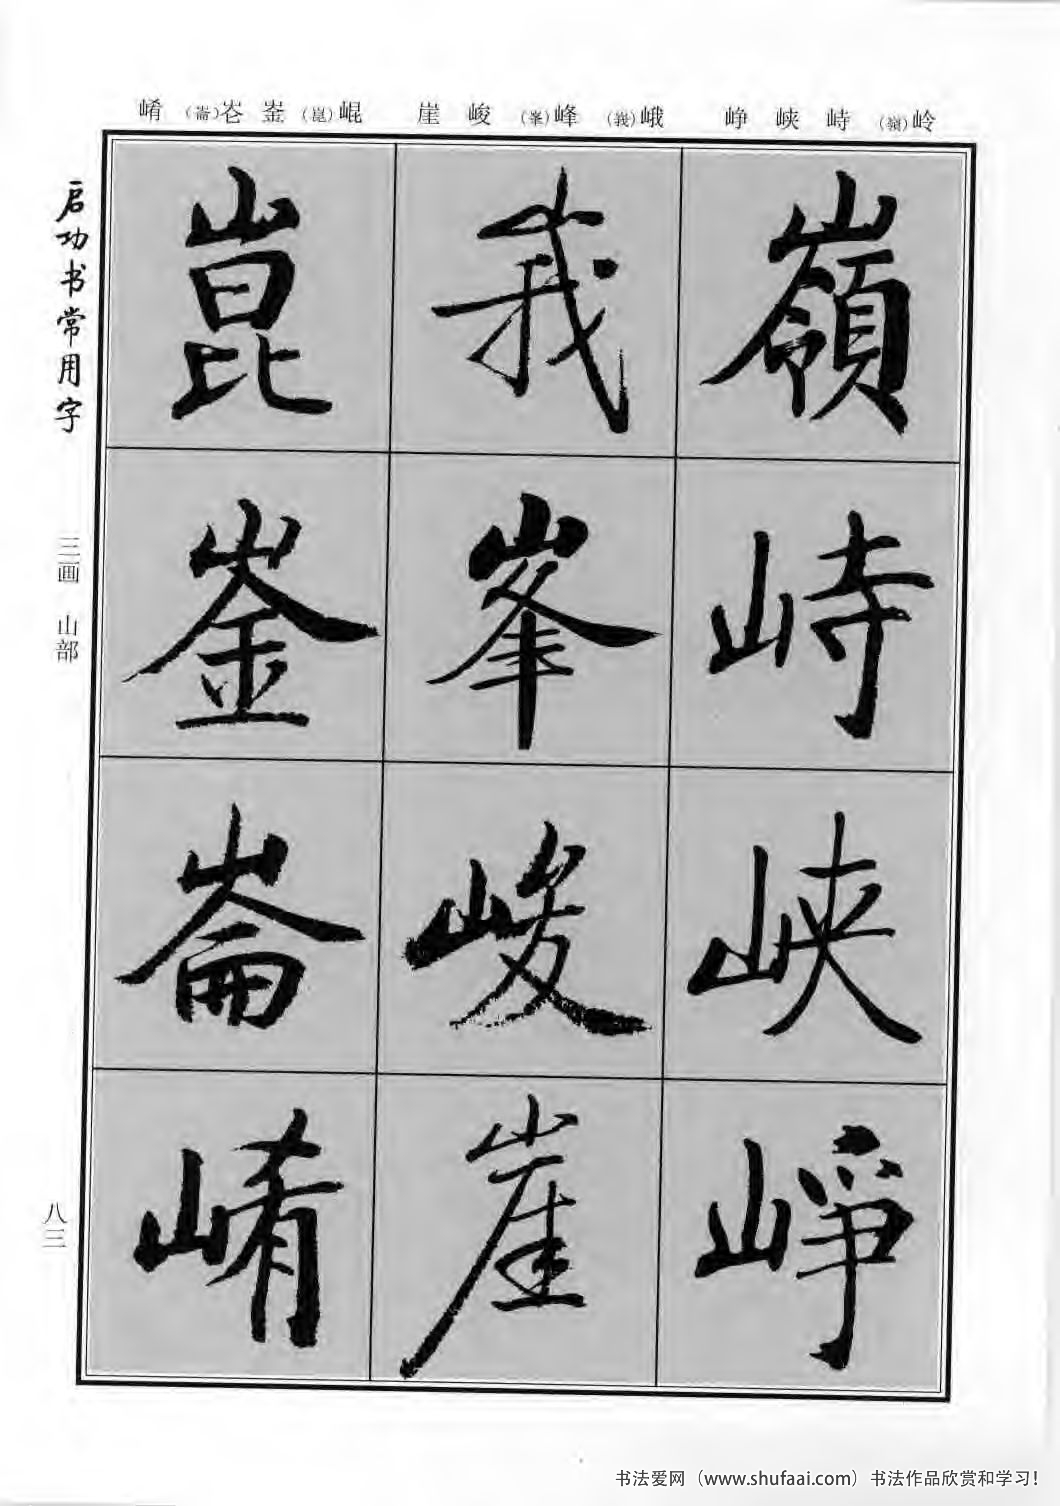 岭(嶺) 峙 峡 峥 峨(峩) 峰(峯) 峻 崖 崐(崑) 崟 (崙) 崤
嶺峙峡崢
峩峯峻崖
崑崟崙崤
启功书常用字
三画 山部
八三
书法爱网（www.shufaai.com）书法作品欣赏和学习！